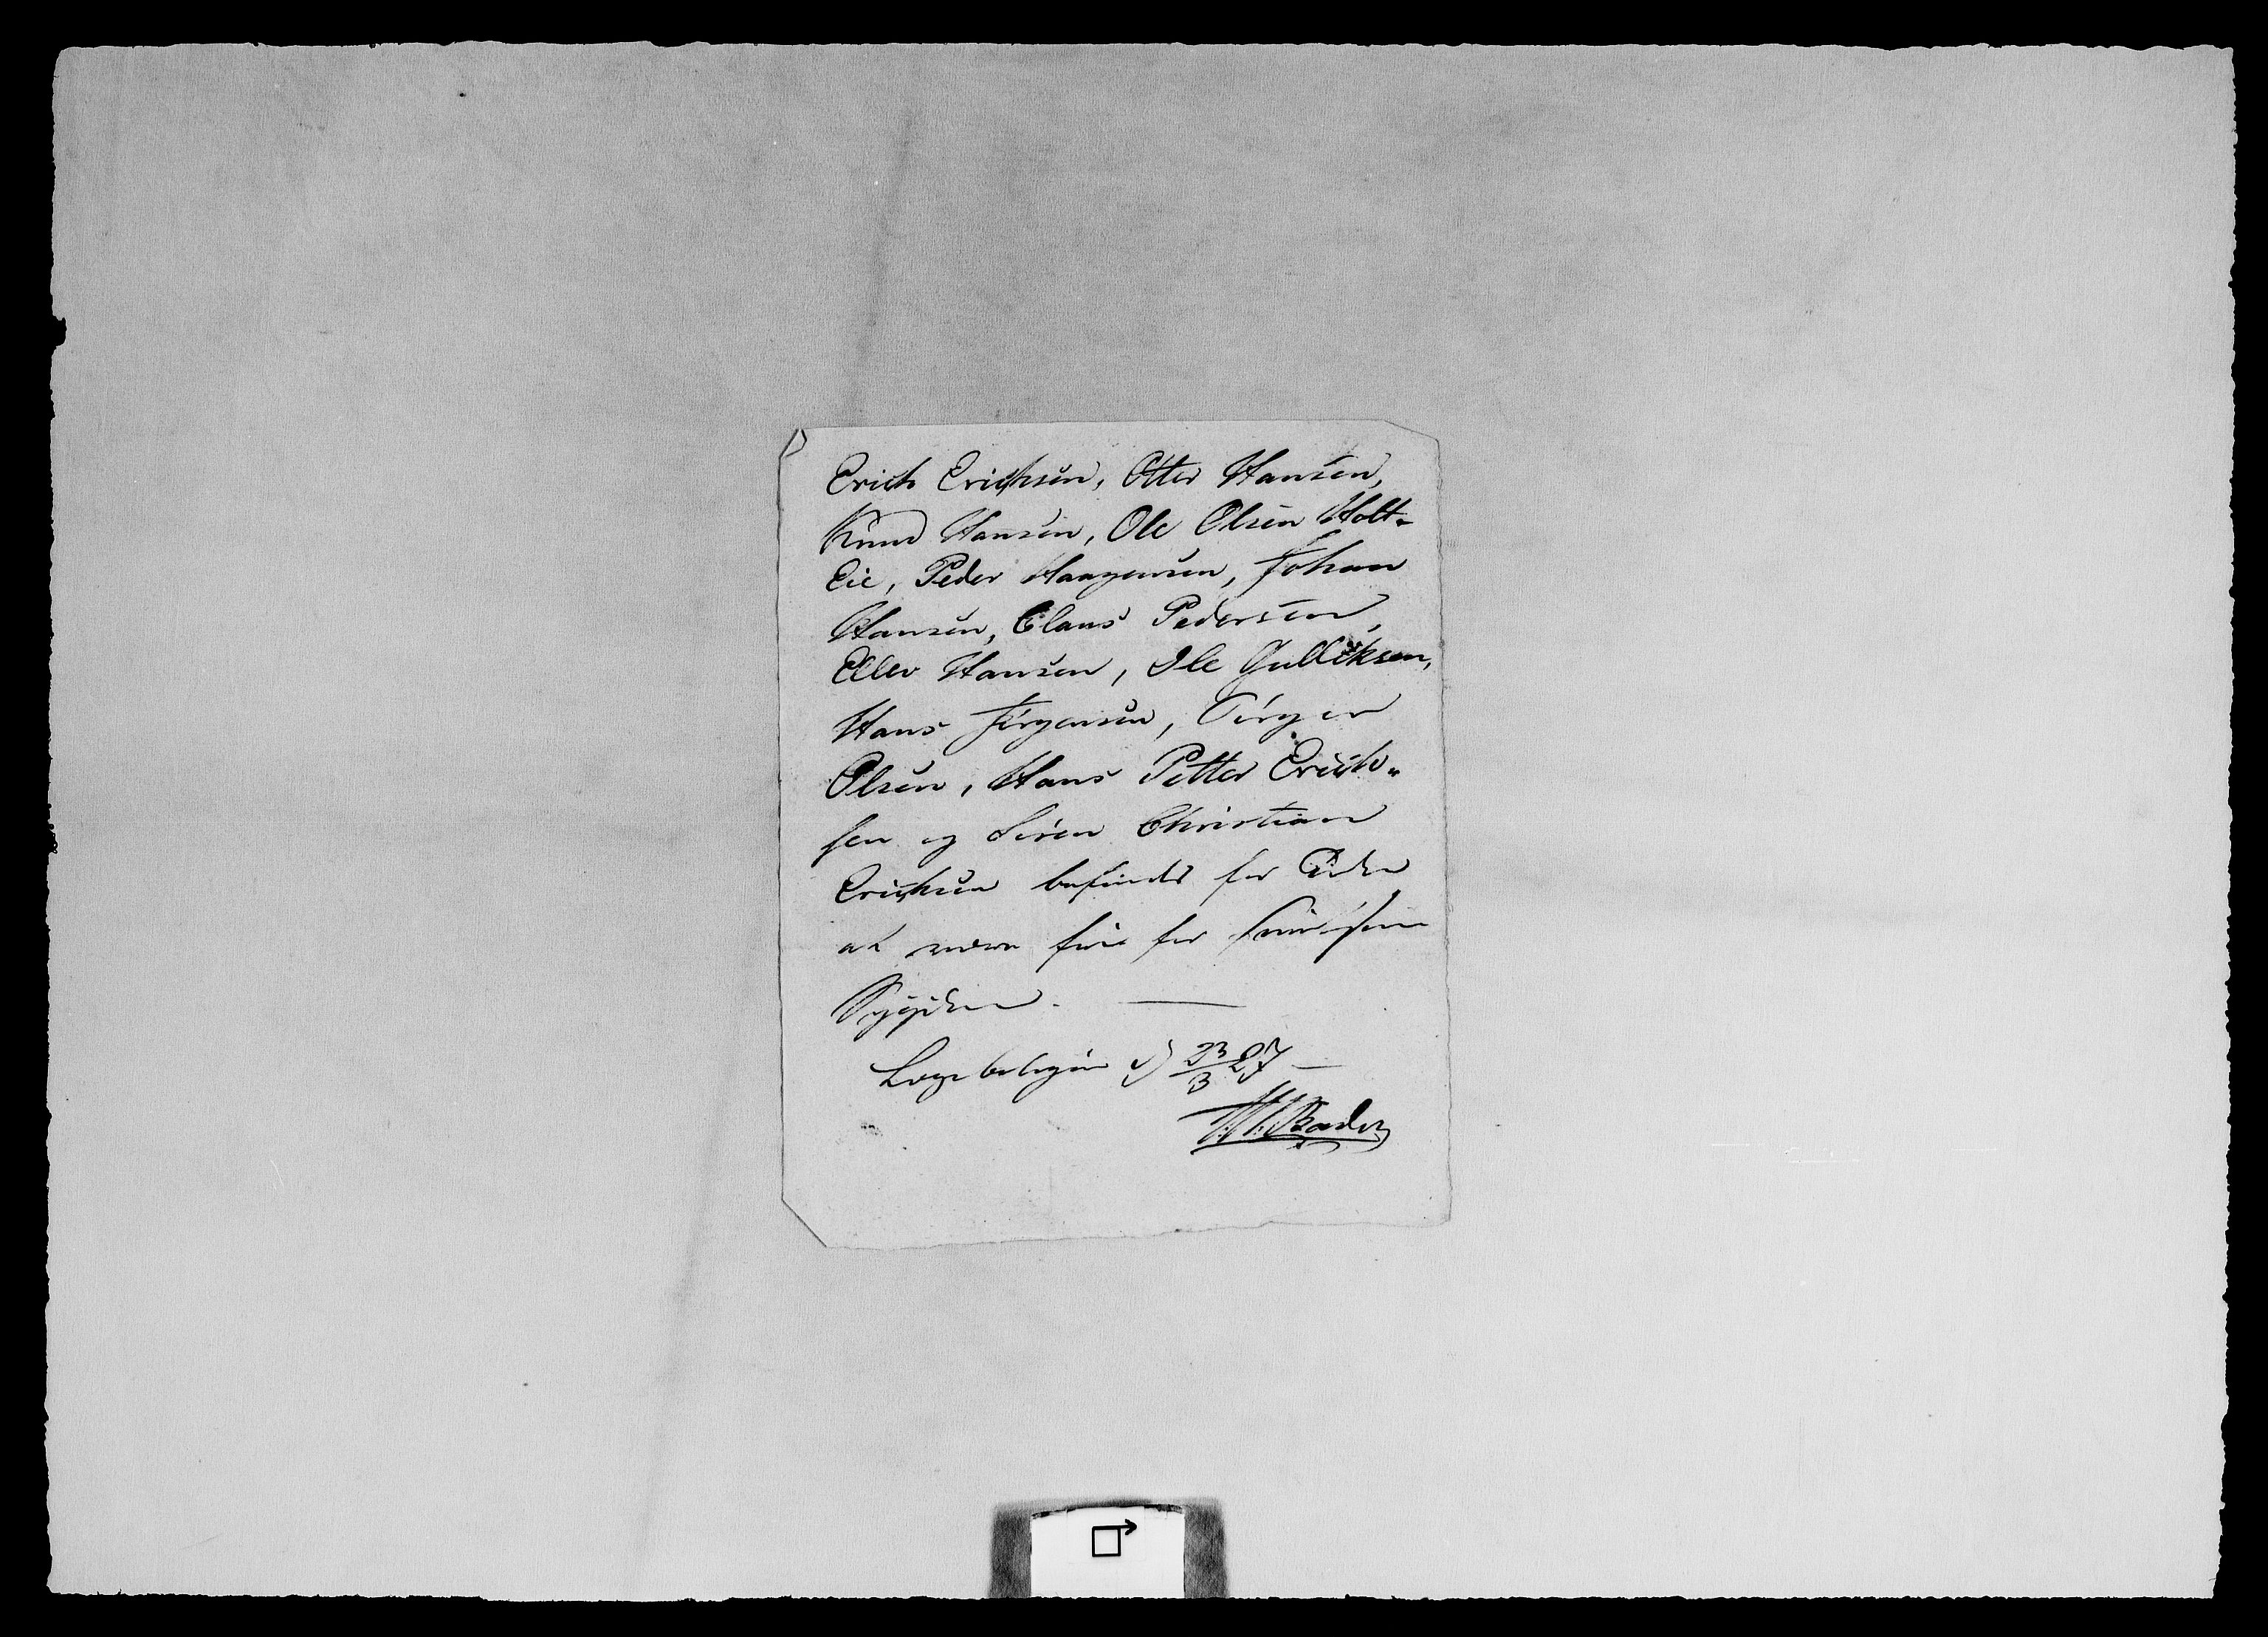 Erich Erichsen, Otter Hansen,
Knud Hansen, Ole Olsen Holt-
Eie, Peder Haagensen, Johan
Hansen, Claus Pedersen,
Ellev Hansen, Ole Gulliksen,
Hans Jörgensen, Törger
Olsen, Hans Petter Erich-
sen og Sören Christian
Erichsen befindes for Tiden
at være frie for smitsom
Sygdom.
Langesund d) 23/3 27
Bader